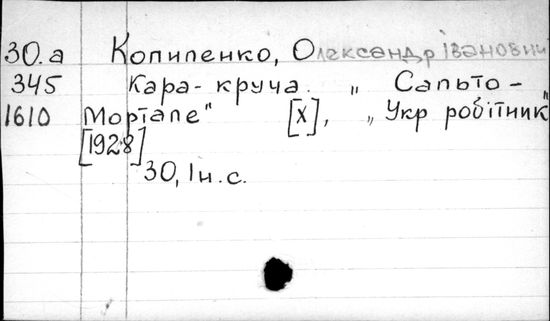 30.а Копиленко, Олександр Іванович
345 Кара-круча. „Сальто-
1610 Мортале" [Х], „Укр робітник"
[1928]
30, Iн.с.